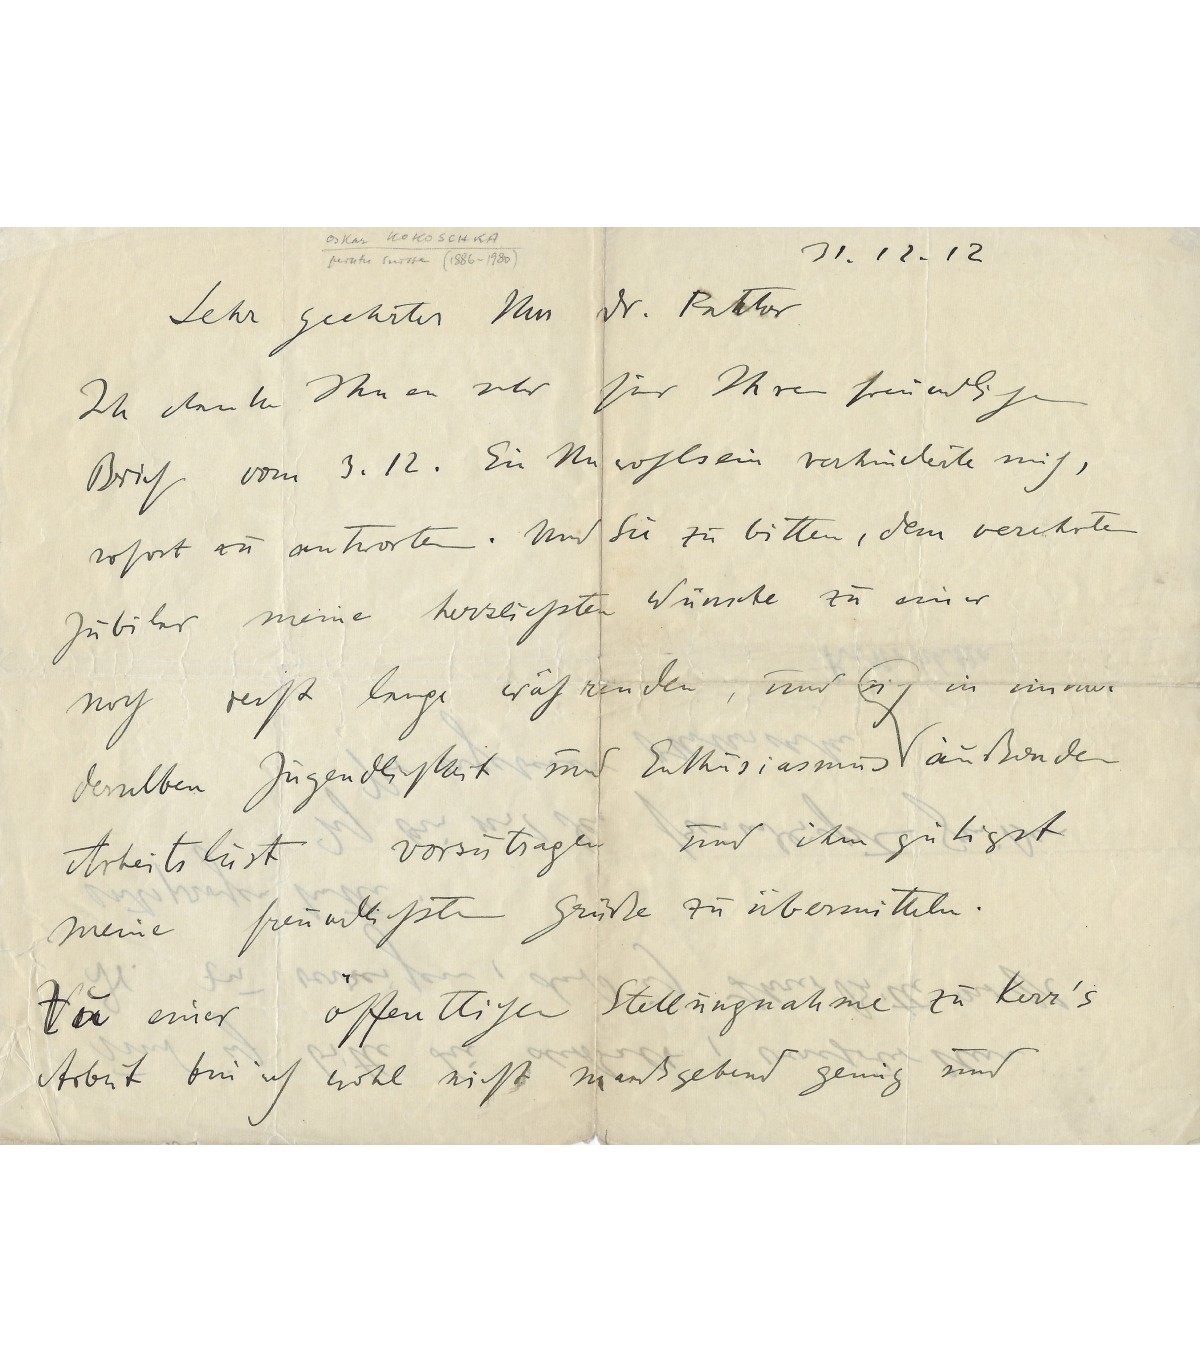 OSKAR KOKOSCHKA
peintre suisse (1886-1980)
31.12.12
Sehr geehrter Herr Dr.
Ich danke Ihnen sehr für Ihren freundlichen
Brief vom 3.12. Ein Unwohlsein verhinderte mich,
sofort zu antworten. Und Sie zu bitten, dem verehrten
Jubilar meine herzlichsten Wünsche zu einer
noch recht lange währenden, und sich in immer
derselben Jugendlichkeit und Enthusiasmus äußernden
Arbeitslust vorzutragen und ihm gütigst
meine freundlichsten Grüße zu übermitteln.
Zu einer öffentlichen Stellungnahme zu Kerr's
Arbeit bin ich wohl nicht maßgebend genug und